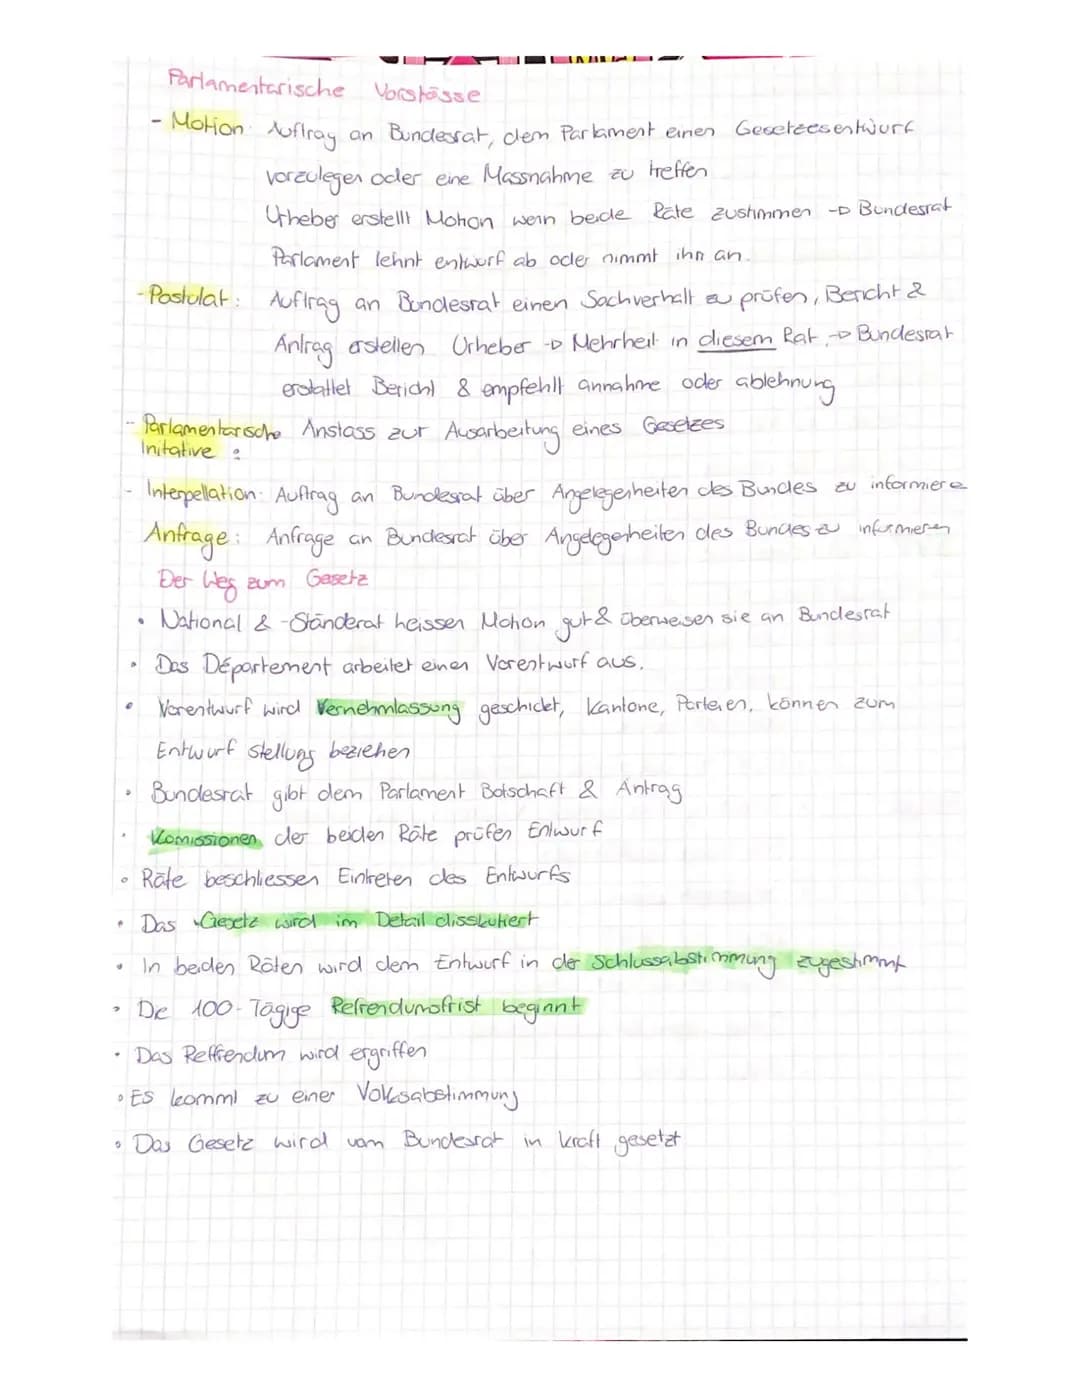 Parlamentarische Vorstösse
- Motion: Auftrag an Bundesrat, dem Parlament einen Gesetzesentwurf
vorzulegen oder eine Massnahme zu treffen
Urheber erstellt Motion wenn beide Räte zustimmen -> Bundesrat
Parlament lehnt entwurf ab oder nimmt ihn an.
- Postulat: Auftrag an Bundesrat einen Sachverhalt zu prüfen, Bericht &
Antrag erstellen Urheber -> Mehrheit in diesem Rat, -> Bundesrat
erstattet Bericht & empfehlt annahme oder ablehnung
- Parlamentarische Anstoss zur Ausarbeitung eines Gesetzes
Initative :
- Interpellation: Auftrag an Bundesrat über Angelegenheiten des Bundes zu informiere
Anfrage: Anfrage an Bundesrat über Angelegenheiten des Bundes zu informieren
Der Weg zum Gesetz
• National & -Ständerat heissen Motion gut & überweisen sie an Bundesrat
• Das Département arbeitet einen Vorentwurf aus.
• Vorentwurf wird Vernehmlassung geschickt, Kantone, Parteien, können zum
Entwurf stellung beziehen
• Bundesrat gibt dem Parlament Botschaft & Antrag
• Komissionen der beiden Räte prüfen Entwurf
• Räte beschliessen Eintreten des Entwurfs
• Das Gesetz wird im Detail disskutiert
• In beiden Räten wird dem Entwurf in der Schlussabstimmung zugestimmt
• Die 100-Tägige Refrendumsfrist beginnt
• Das Reffrendum wird ergriffen
• Es kommt zu einer Volksabstimmung
• Das Gesetz wird vom Bundesrat in kraft gesetzt